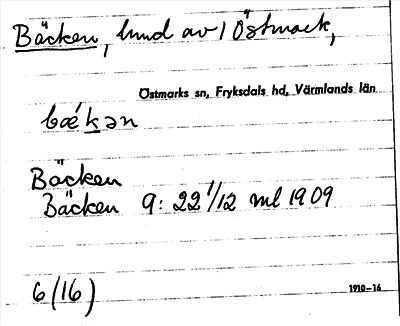 Bäcken, hmd av 1 Östmark,
Östmarks sn, Fryksdals hd, Värmlands län
bǽkən
Bäcken
Bäcken 9: 22 1/12 ml 1909
6 (16)
1910-16